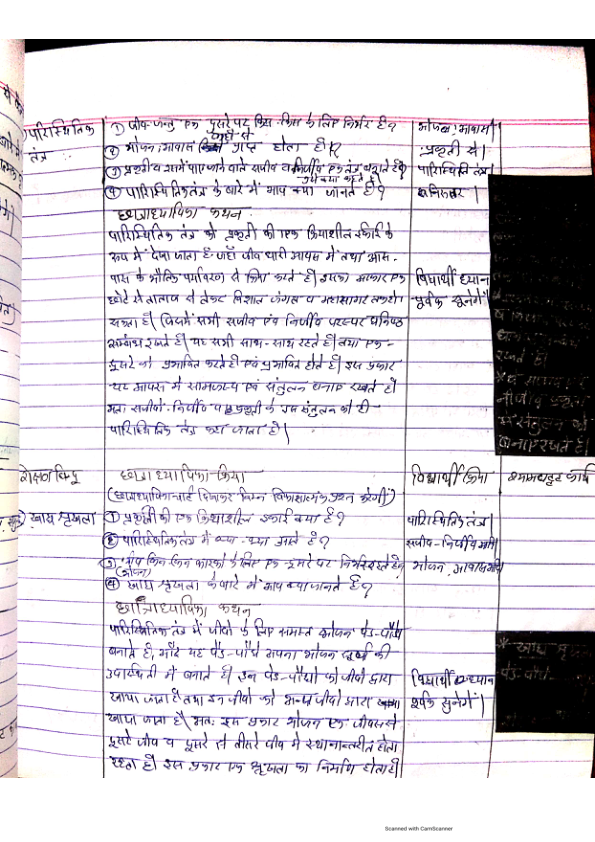 पारिस्थितिक तंत्र
① जीव-जन्तु एक दूसरे पर किस-किस के लिए निर्भर है?
② भोजन, आवास कहाँ से प्राप्त होता है?
③ प्रकृति में पाए जाने वाले सजीव व निर्जीव एक तंत्र बनाते हैं? उसे क्या कहते हैं
④ पारिस्थितिक तंत्र के बारे में आप क्या जानते हैं?
भोजन, आवास।
प्रकृती से।
पारिस्थिति तंत्र
निरुत्तर
छात्राध्यापिका कथन
पारिस्थितिक तंत्र को प्रकृती की एक क्रियाशील इकाई के
रूप में देखा जाता है जहाँ जीव धारी आपस में तथा आस-
पास के भौतिक पर्यावरण से क्रिया करते है। इसका आकार एक
छोटे से तालाब से लेकर विशाल जंगल व महासागर तक हो
सकता है। जिसमें सभी सजीव एवं निर्जीव परस्पर घनिष्ठ
सम्बन्ध रखते है। यह सभी साथ-साथ रहते है। तथा एक-
दूसरे को प्रभावित करते है एवं प्रभावित होते है। इस प्रकार
यह आपस में सामंजस्य एवं संतुलन बनाए रखते है।
अतः सजीवों-निर्जीव व प्रकृती के इस संतुलन को ही
पारिस्थितिक तंत्र कहा जाता है।
विद्यार्थी ध्यान
पूर्वक सुनेगें।
रखते है।
संतुलन को
बनाए रखते है।
शिक्षण बिन्दु
छात्राध्यापिका-क्रिया
विद्यार्थी क्रिया
श्यामपट्ट कार्य
(छात्राध्यापिका चार्ट दिखाकर निम्न विकासात्मक प्रश्न करेगी)
खाद्य श्रृंखला
① प्रकृती की एक क्रियाशील इकाई क्या है?
② पारिस्थितिक तंत्र में क्या-क्या आते है?
③ जीव किन-किन कारकों के लिए एक-दूसरे पर निर्भर रहते है?
④ खाद्य श्रृंखला के बारे में आप क्या जानते है?
पारिस्थितिक तंत्र।
सजीव-निर्जीव सभी
भोजन, आवास आदि
छात्राध्यापिका कथन
पारिस्थितिक तंत्र में जीवों के लिए समस्त भोजन पेड़-पौधे
बनाते है, और यह पेड़-पौधे अपना भोजन सूर्य की
उपस्थिती में बनाते है। इन पेड़-पौधों को जीवों द्वारा
खाया जाता है तथा इन जीवों को अन्य जीवों द्वारा
खाया जाता है। अतः इस प्रकार भोजन एक जीव से
दूसरे जीव व दूसरे से तीसरे जीव में स्थानान्तरीत होता
रहता है। इस प्रकार एक श्रृंखला का निर्माण होता है।
विद्यार्थी ध्यान
पूर्वक सुनेगें।
* खाद्य
पेड़-पौधे
Scanned with CamScanner